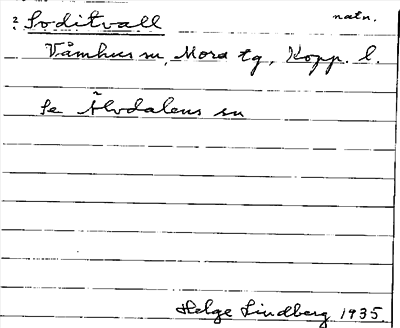 ? Soditvall natn.
Våmhus sn, Mora tg, Kopp. l.
Se Älvdalens sn
Helge Lindberg 1935.